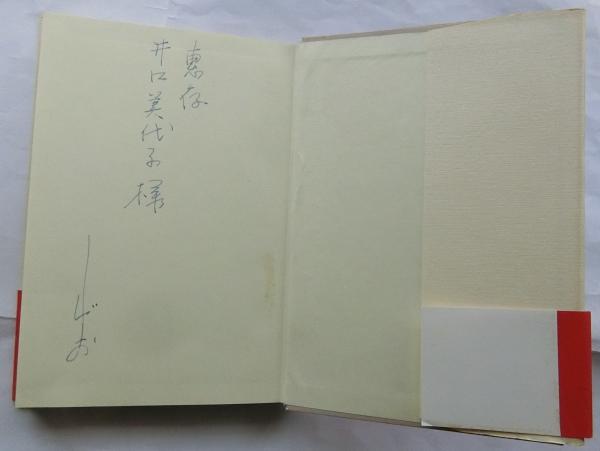 恵存
井口美代子様
しげお